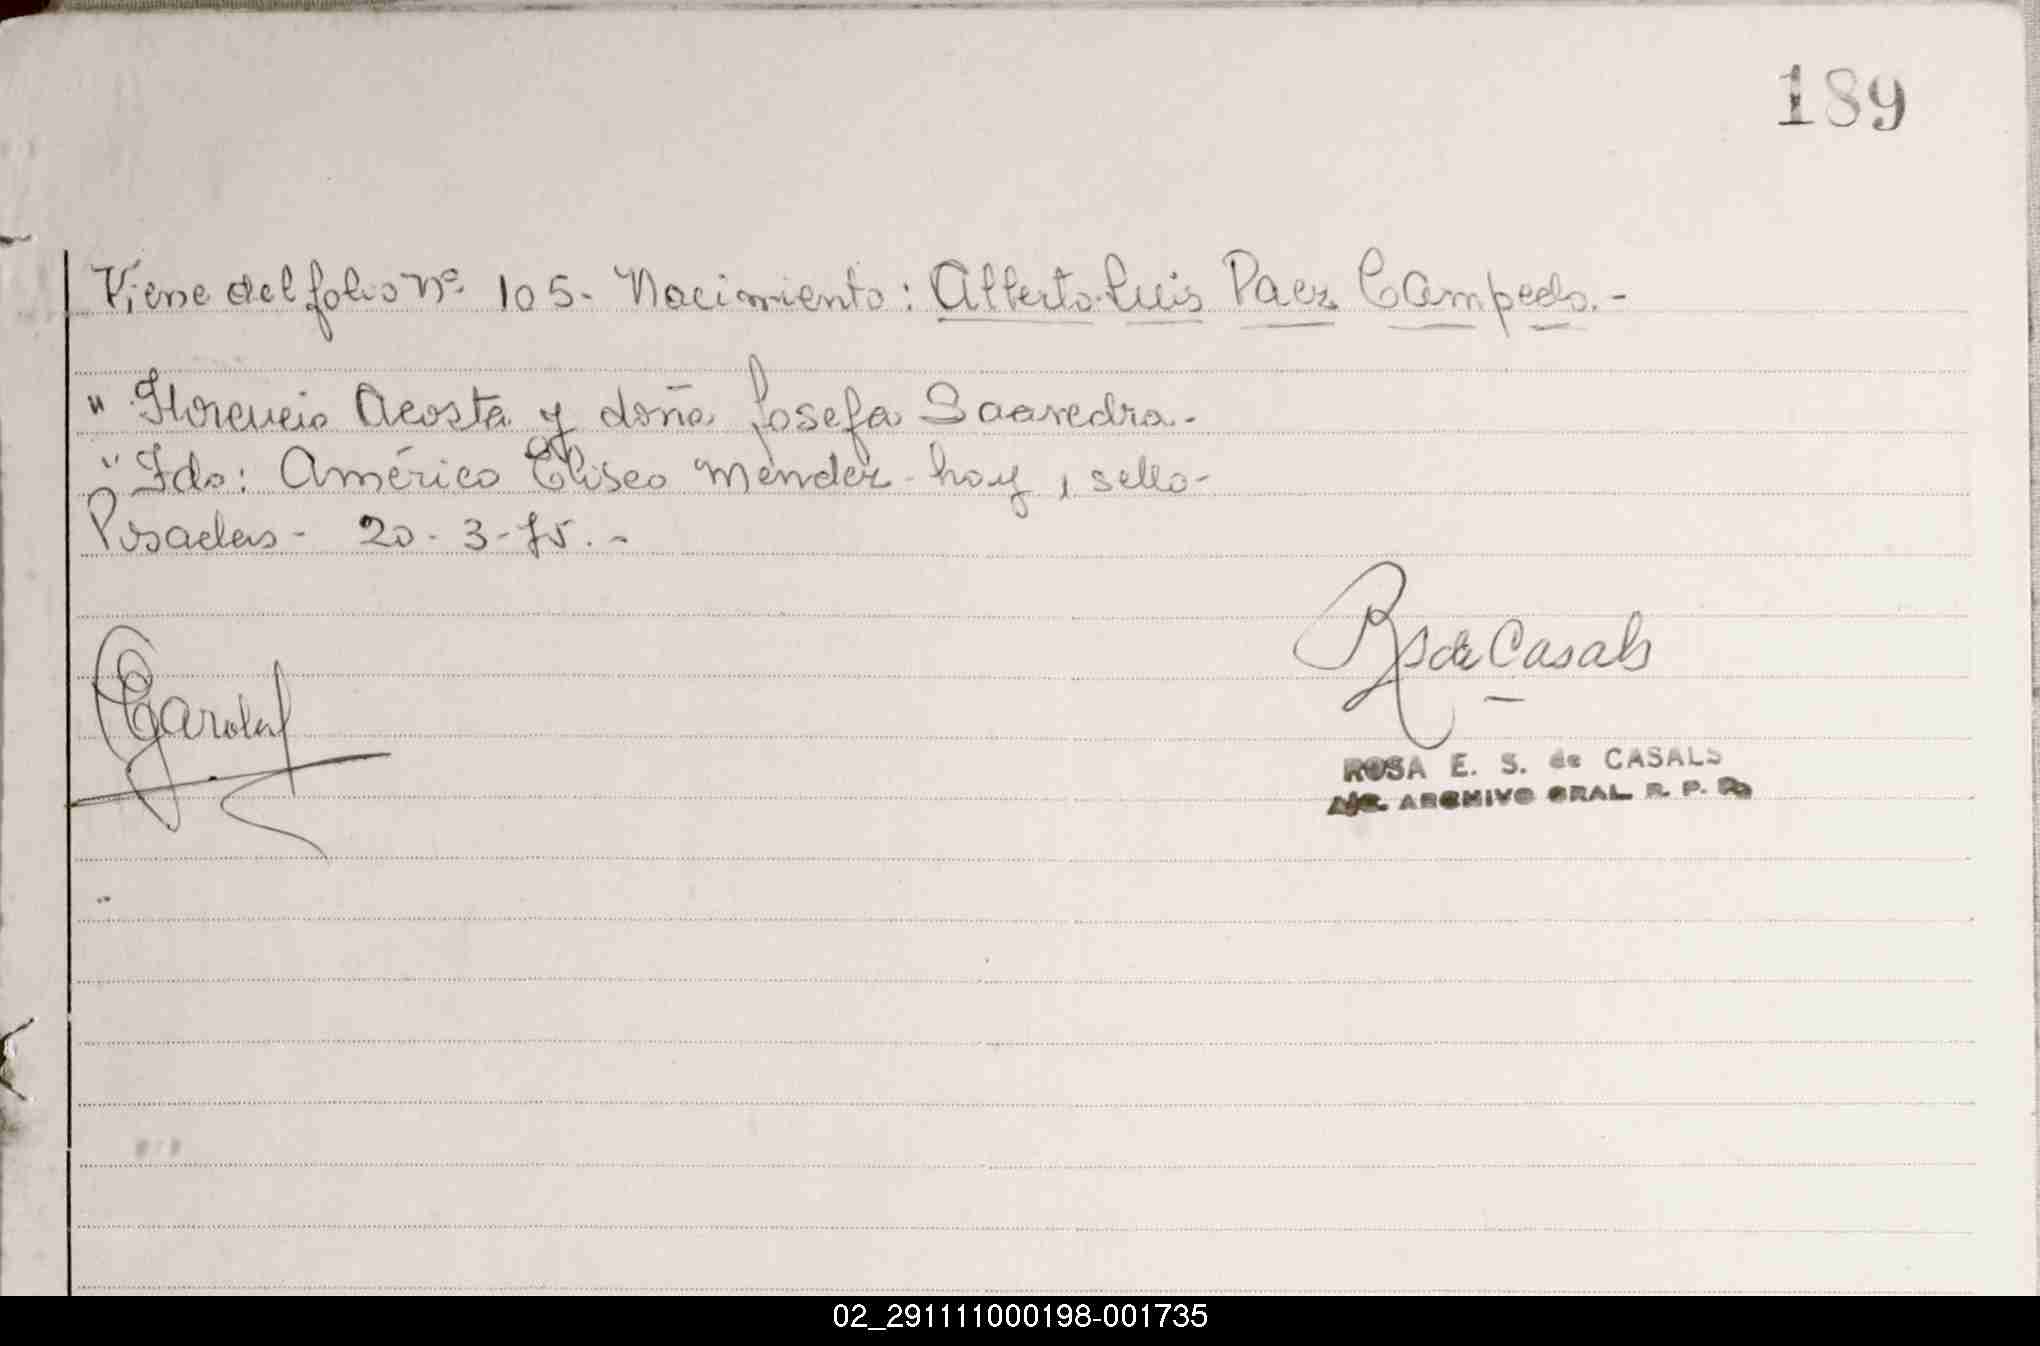 189
Viene del folio Nº 105- Nacimiento: Alberto Luis Paez Campedo.-
" Florencio Acosta y doña Josefa Saavedra.-
" Fdo: Américo Eliseo Mendez- hay, sello-
Posadas- 20-3-75.-
R S de Casals
ROSA E. S. de CASALS
A/C. ARCHIVO GRAL R. P. P.
02_291111000198-001735